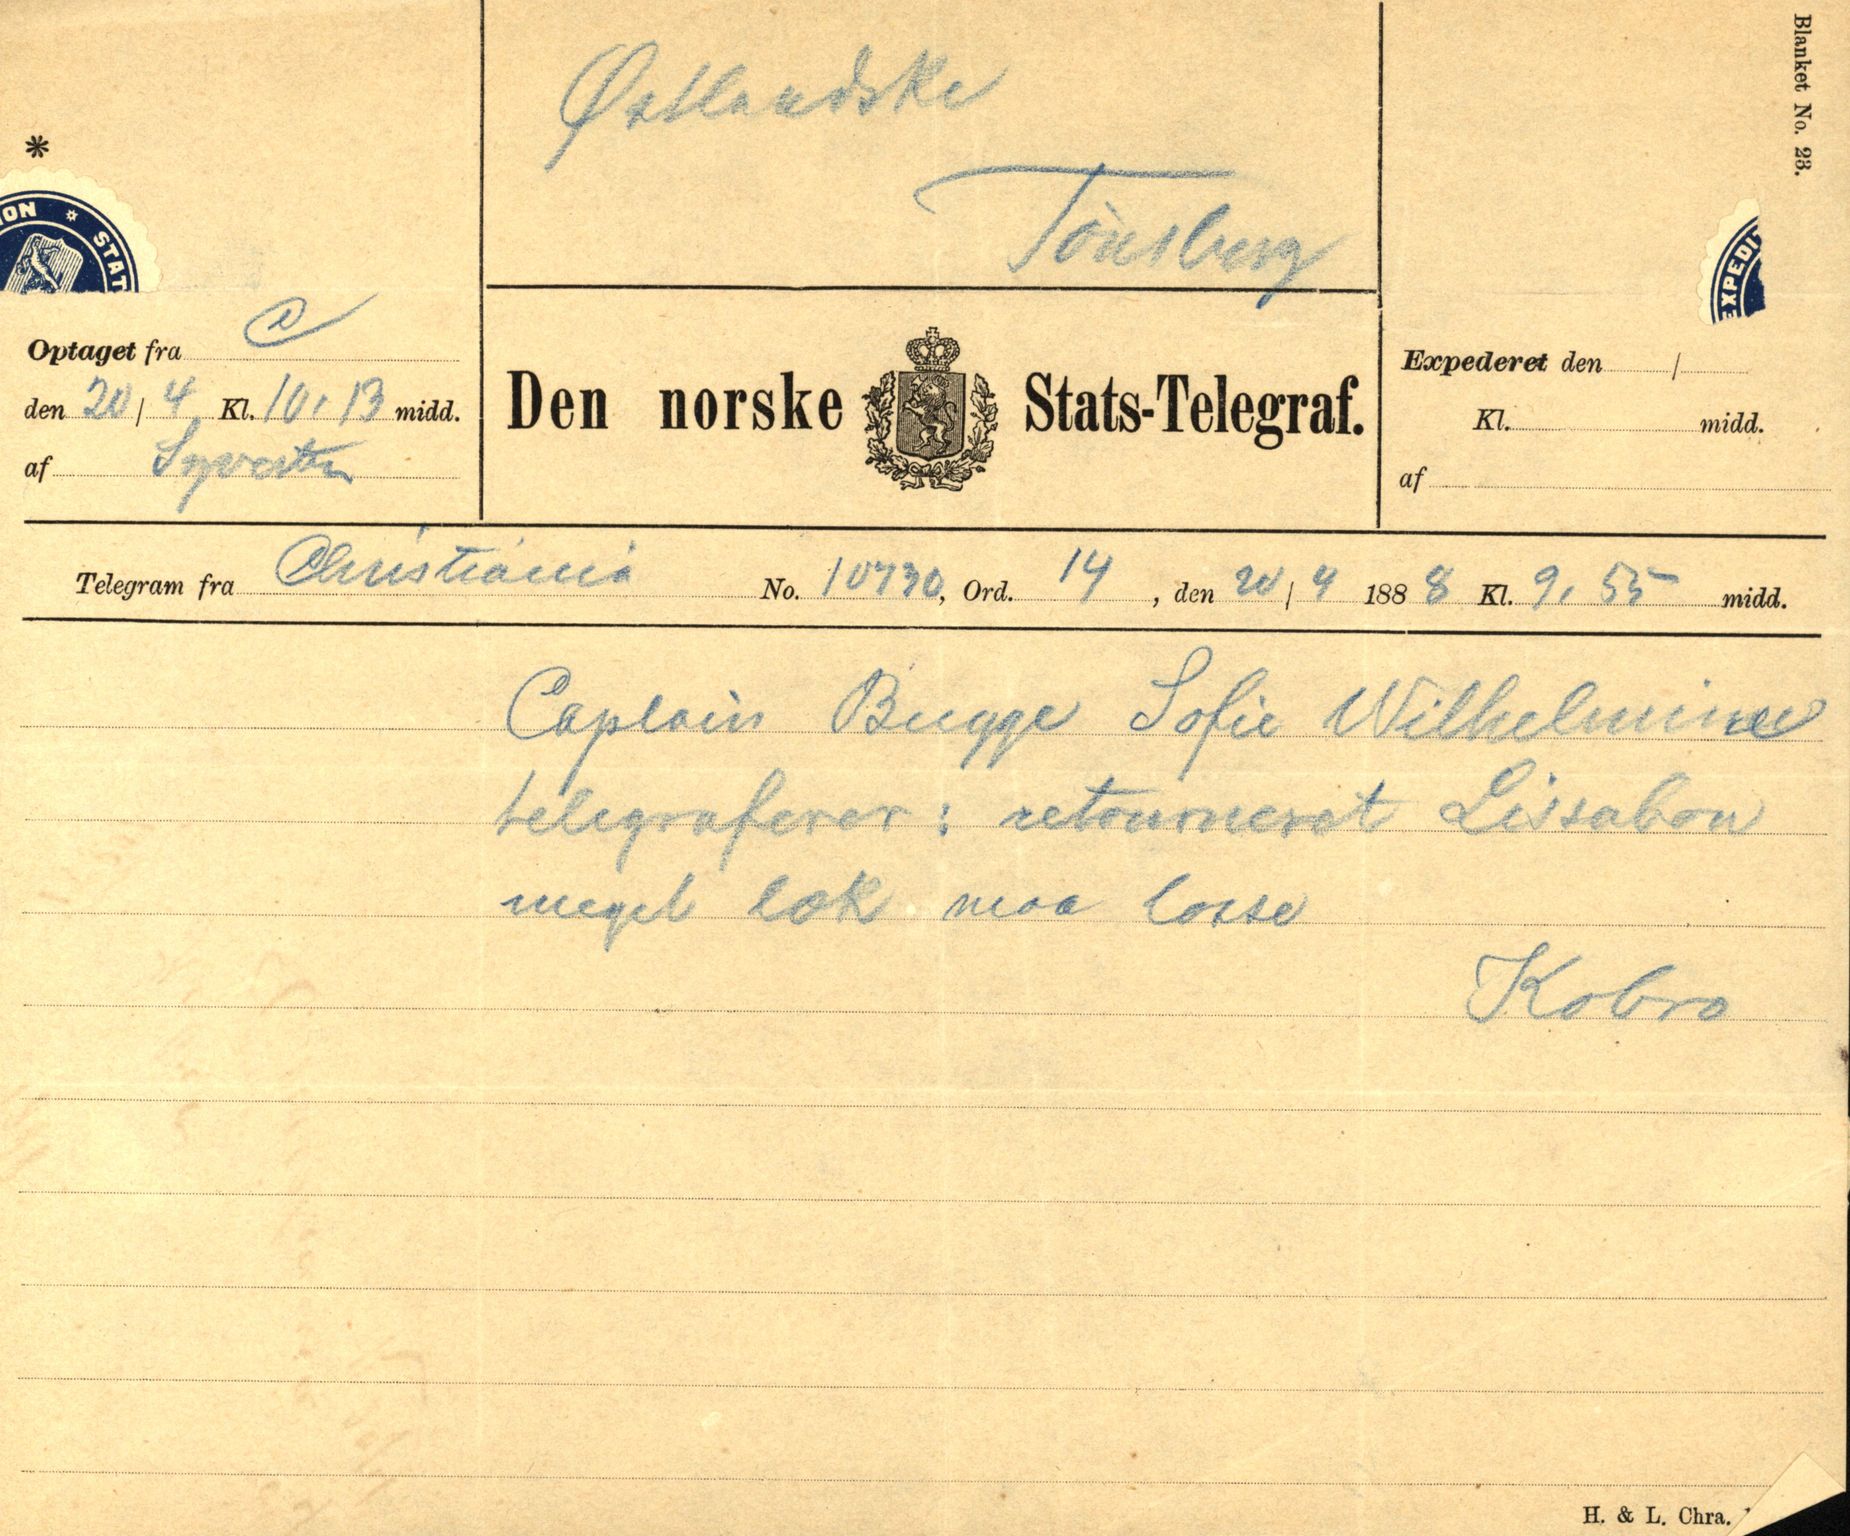 Blanket No. 23.
Østlandske
Tönsberg
*
ION * STAT
EXPEDIT
Optaget fra C
den 20/4 Kl. 10,13 midd.
af
Den norske Stats-Telegraf.
Expederet den /
Kl. midd.
af
Telegram fra Christiania No. 10730, Ord. 14, den 20/4 1888 Kl. 9,55 midd.
Captain Bugge Sofie Wilhelmine
telegraferer: retourneret Lissabon
meget læk maa losse
Kobro
H. & L. Chra.